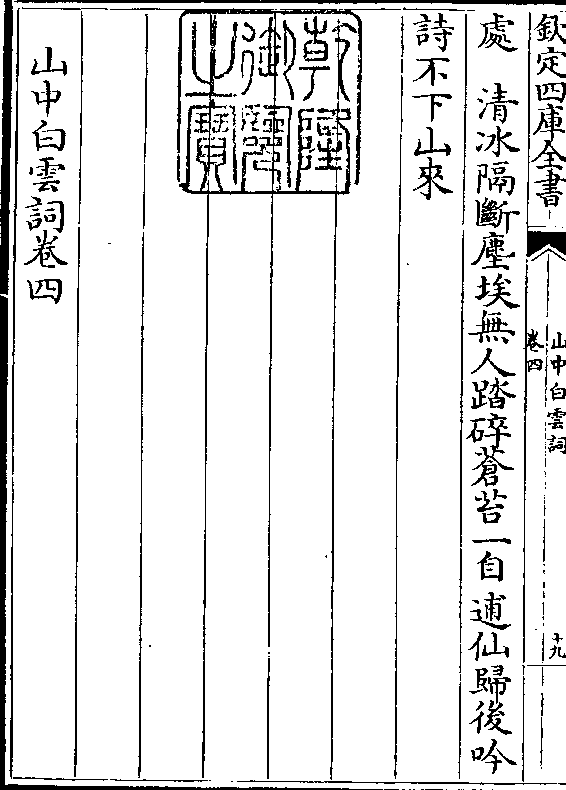 欽定四庫全書
山中白雲詞
卷四
十九
處　清冰隔斷塵埃無人踏碎蒼苔一自逋仙歸後吟
詩不下山來
乾隆
御覽
之寶
山中白雲詞卷四